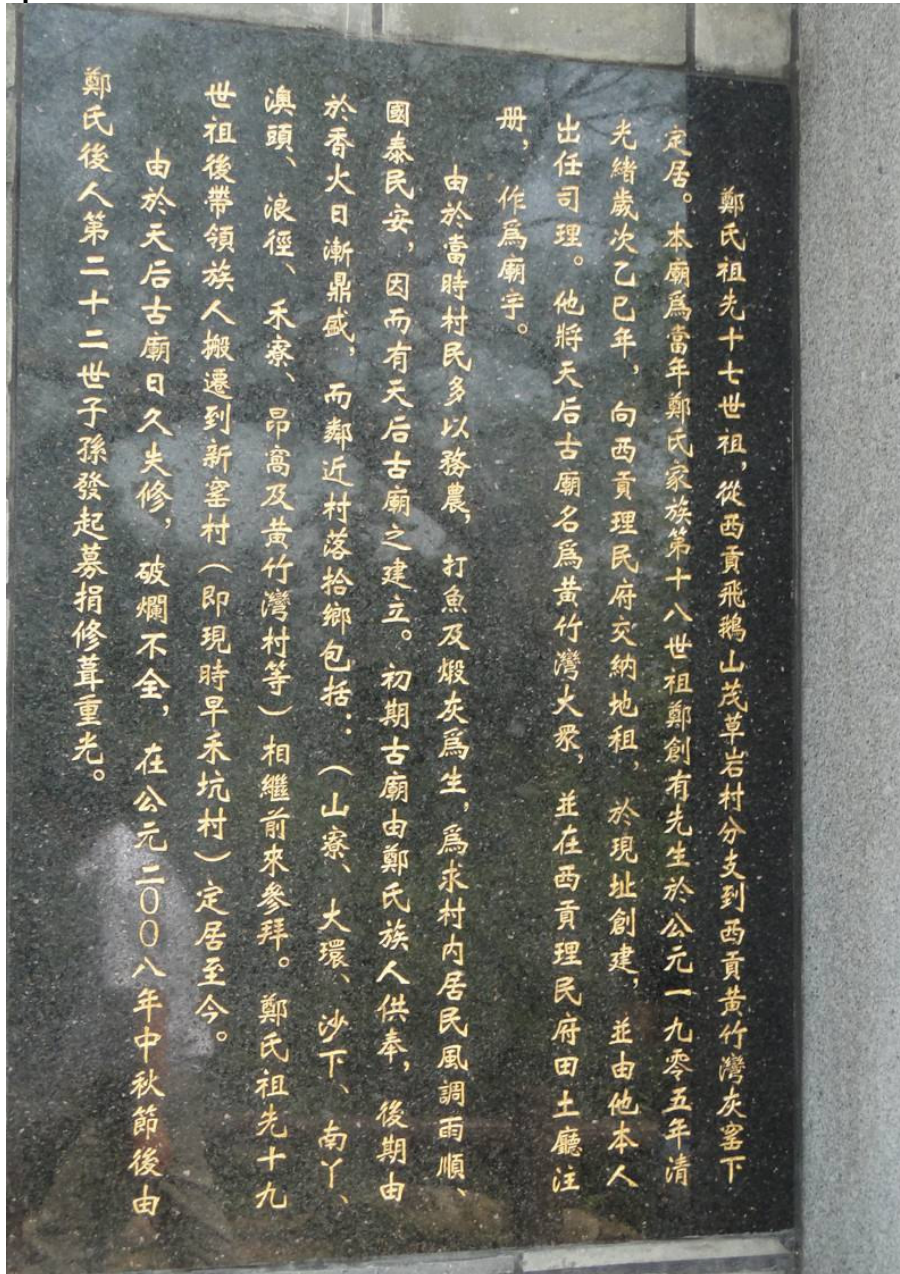 鄭氏祖先十七世祖，從西貢飛鵝山茂草岩村分支到西貢黃竹灣灰窰下
定居。本廟爲當年鄭氏家族第十八世祖鄭創有先生於公元一九零五年清
光緒歲次乙巳年，向西貢理民府交納地租，於現址創建，並由他本人
出任司理。他將天后古廟名爲黃竹灣大眾，並在西貢理民府田土廳注
册，作爲廟宇。
由於當時村民多以務農，打魚及煅灰爲生，爲求村內居民風調雨順、
國泰民安，因而有天后古廟之建立。初期古廟由鄭氏族人供奉，後期由
於香火日漸鼎盛，而鄰近村落拾鄉包括：（山寮、大環、沙下、南丫、
澳頭、浪徑、禾寮、昂窩及黃竹灣村等）相繼前來參拜。鄭氏祖先十九
世祖後帶領族人搬遷到新窰村（即現時早禾坑村）定居至今。
由於天后古廟日久失修，破爛不全，在公元二〇〇八年中秋節後由
鄭氏後人第二十二世子孫發起募捐修葺重光。